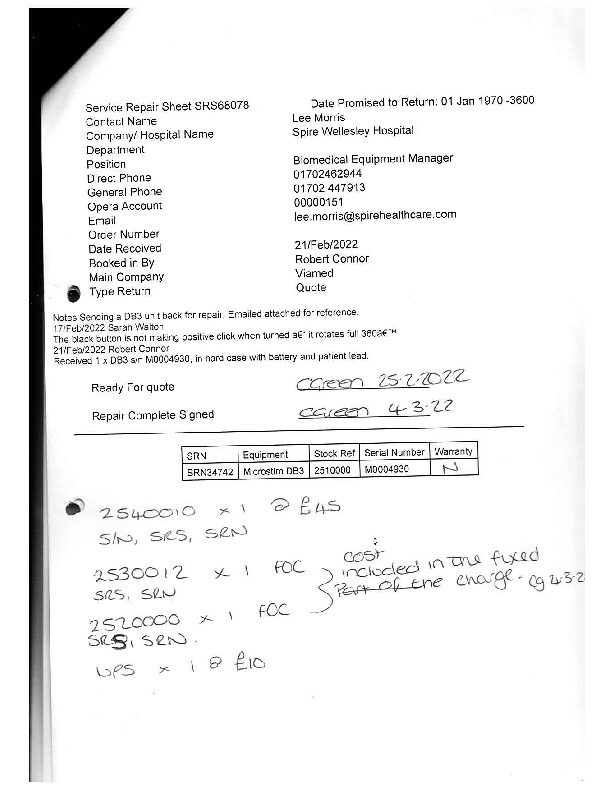 Service Repair Sheet SRS68078 Date Promised to Return: 01 Jan 1970 -3600
Contact Name Lee Morris
Company/ Hospital Name Spire Wellesley Hospital
Department
Position Biomedical Equipment Manager
Direct Phone 01702462944
General Phone 01702 447913
Opera Account 00000151
Email lee.morris@spirehealthcare.com
Order Number
Date Received 21/Feb/2022
Booked in By Robert Connor
Main Company Viamed
Type Return Quote
Notes Sending a DB3 unit back for repair. Emailed attached for reference.
17/Feb/2022 Sarah Walton
The black button is not making positive click when turned â€" it rotates full 360â€™
21/Feb/2022 Robert Connor
Received 1 x DB3 s/n M0004930, in hard case with battery and patient lead.
Ready For quote CGreen 25-2-2022
Repair Complete Signed CGreen 4-3-22
SRN Equipment Stock Ref Serial Number Warranty
SRN34742 Microstim DB3 2510000 M0004930 N
2540010 x 1 @ £45
S/N, SRS, SRN
2530012 x 1 FOC
SRS, SRN
cost
included in the fixed
Part of the charge - cg
2520000 x 1 FOC
SRS, SRN.
UPS x 1 @ £10